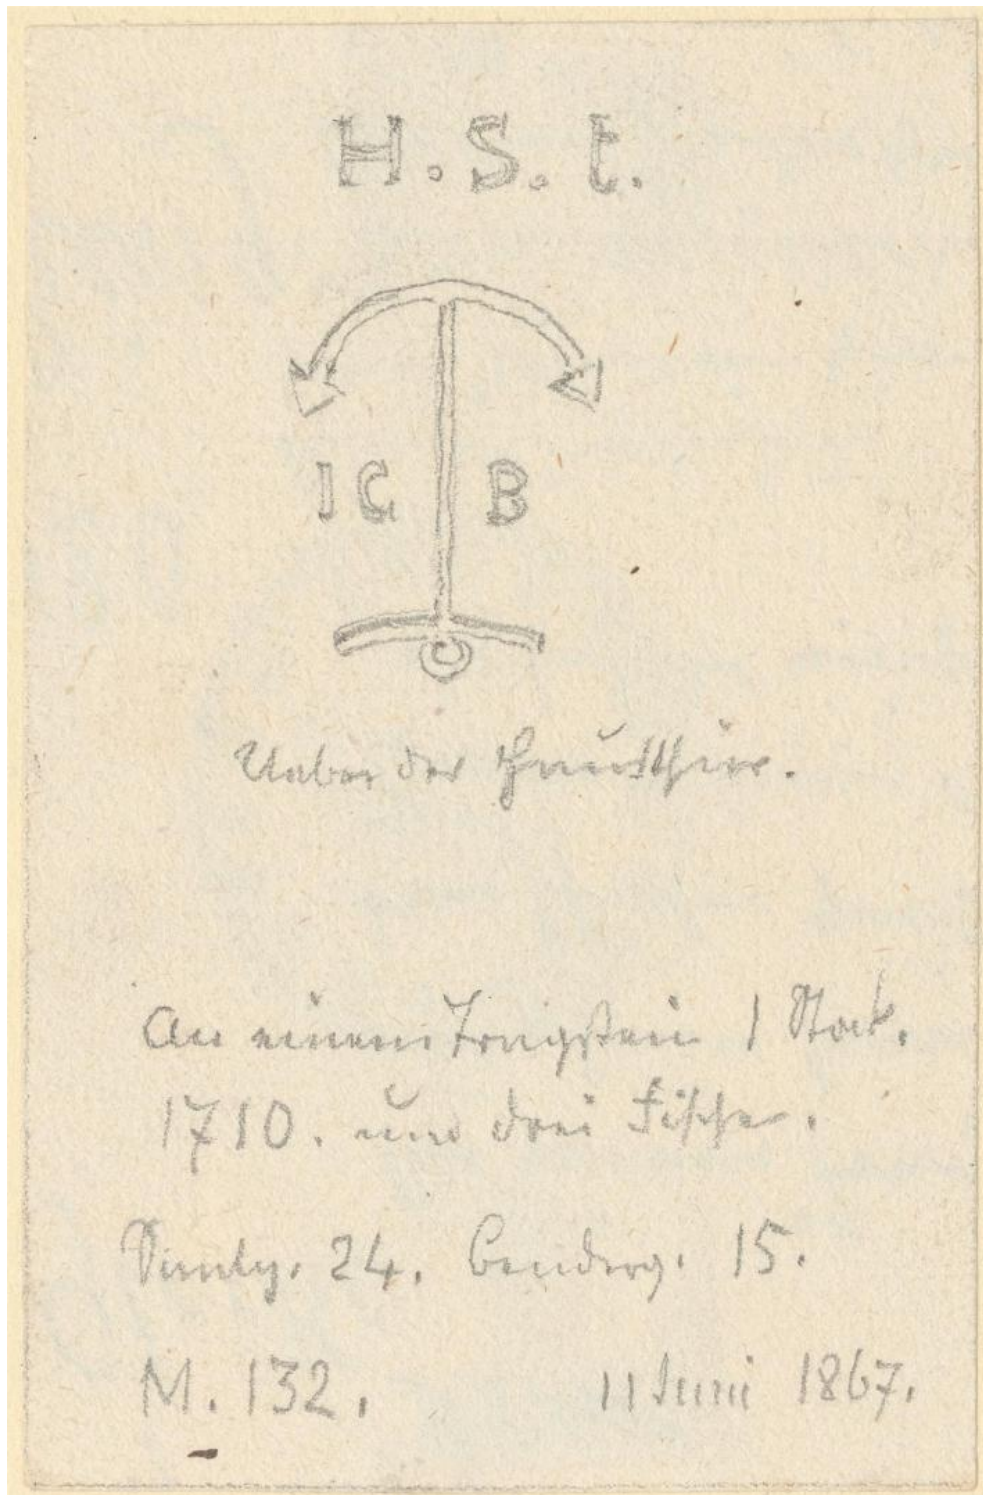 H. S. t.
I C B
Ueber der Hausthür.
An einem Tragstein 1 Stock.
1710. und drei Fische.
24. Benderg. 15.
M. 132. 11 Juni 1867.